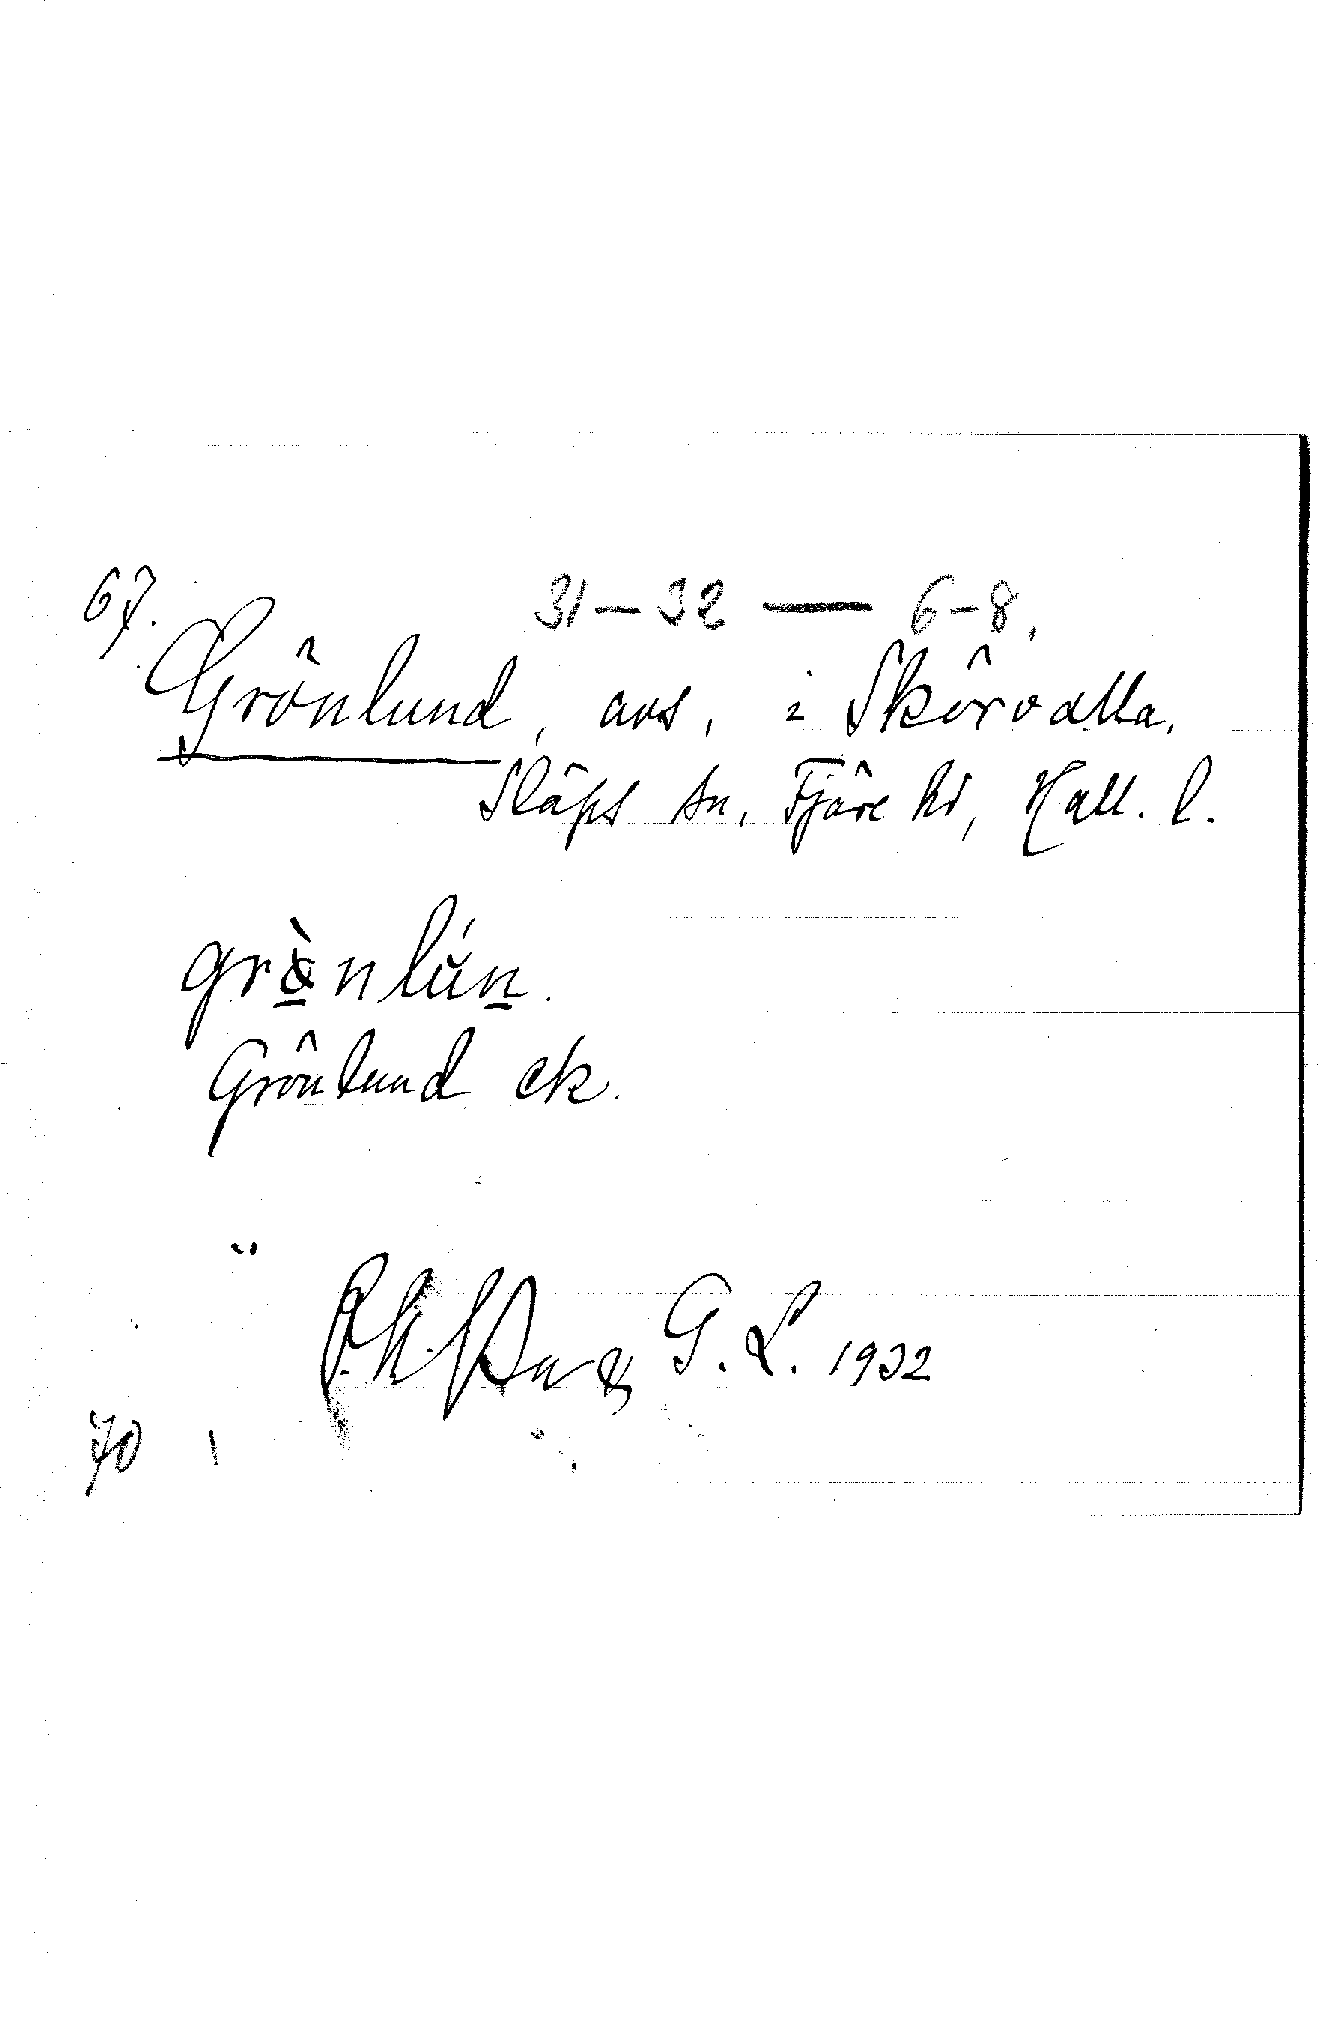 67. 31 — 32 — 6 - 8.
Grönlund, avs, i Skörvalla,
Släps sn, Fjäre hd, Hall. l.
Grönlund ek.
G. L. 1932
70